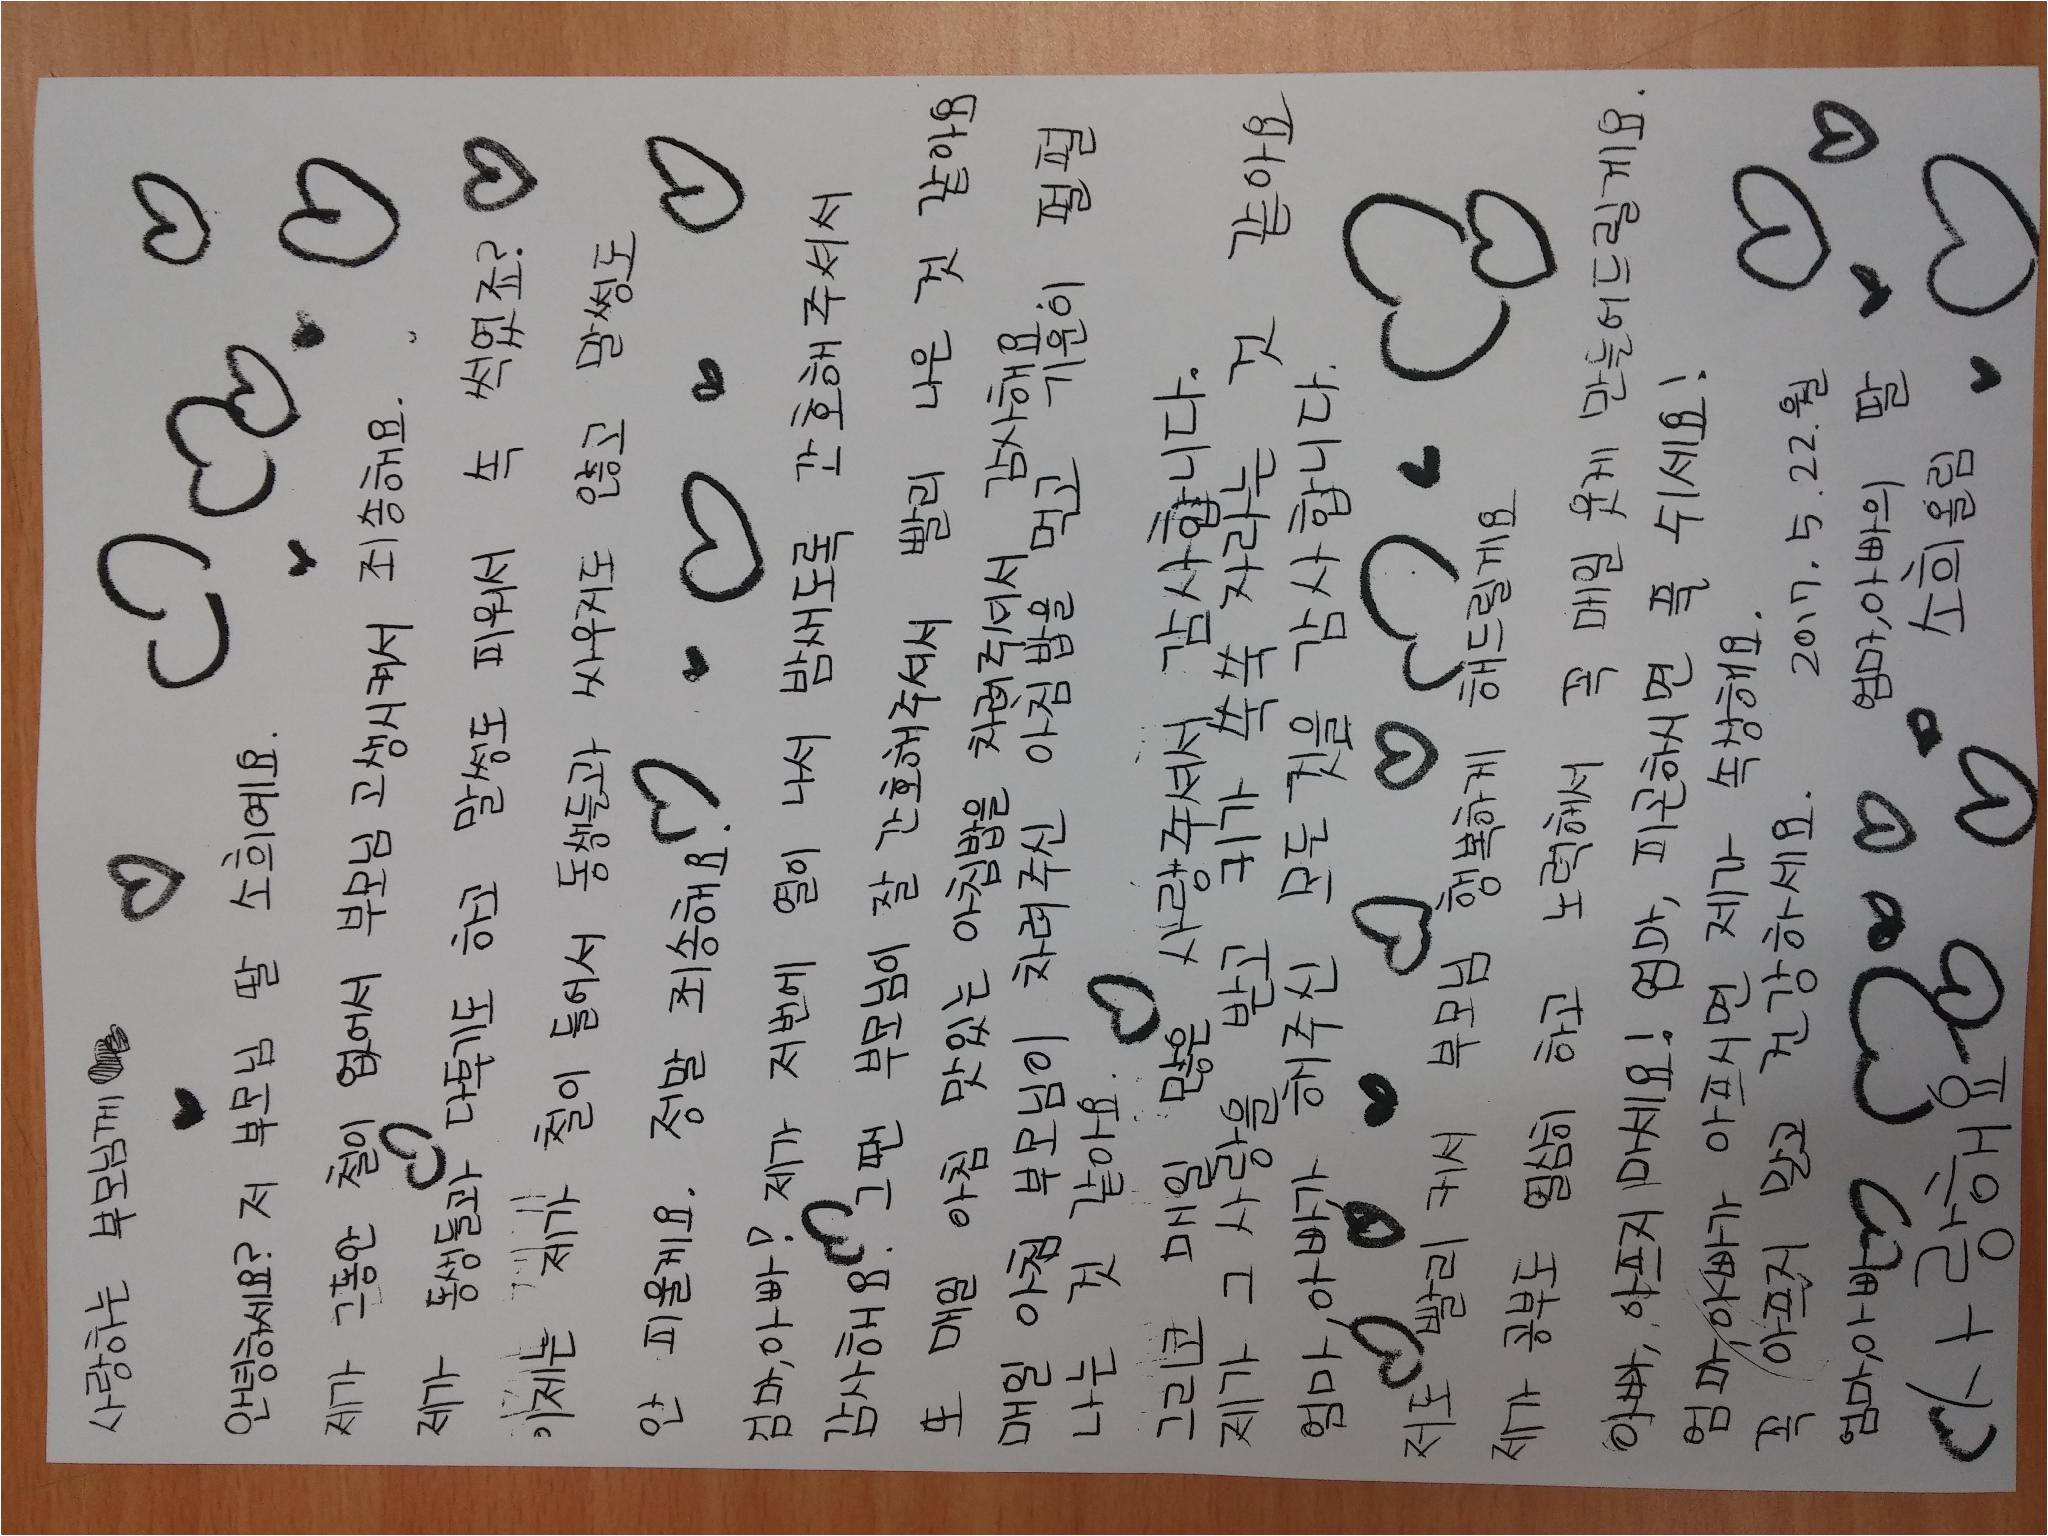 사랑하는 부모님께
안녕하세요? 저 부모님 딸 소희예요.
제가 그동안 철이 없어서 부모님 고생시켜서 죄송해요.
제가 동생들과 다투기도 하고 말썽도 피워서 속 썩였죠?
이제는 제가 철이 들어서 동생들과 싸우지도 않고 말썽도
안 피울게요. 정말 죄송해요.
엄마,아빠? 제가 저번에 열이 나서 밤새도록 간호해주셔서
감사해요. 그땐 부모님이 잘 간호해주셔서 빨리 나은 것 같아요
또 매일 아침 맛있는 아침밥을 차려주셔서 감사해요
매일 아침 부모님이 차려주신 아침밥을 먹고 기운이 펄펄
나는 것 같아요.
그리고 매일 많은 사랑주셔서 감사합니다.
제가 그 사랑을 받고 키가 쑥쑥 자라는 것 같아요
엄마,아빠가 해주신 모든것을 감사합니다.
저도 빨리 커서 부모님 행복하게 해드릴게요
제가 공부도 열심히 하고 노력해서 꼭 매일 웃게 만들어드릴게요.
아빠, 아프지마세요! 엄마, 피곤하시면 푹 쉬세요!
엄마,아빠가 아프시면 제가 속상해요.
꼭 아프지 말고 건강하세요. 2017.5.22.월
엄마,아빠 엄마,아빠의 딸
사랑해요 소희올림